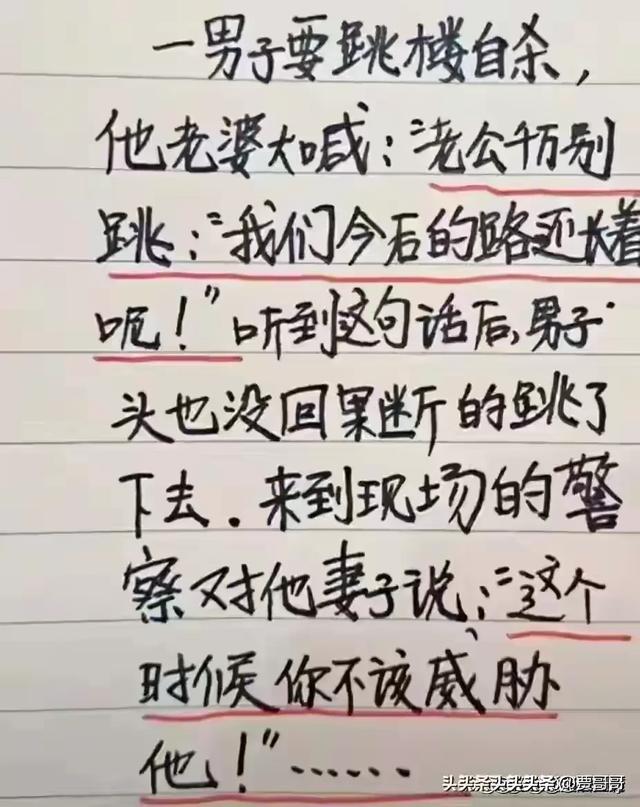 一男子要跳楼自杀，
他老婆大喊：“老公千万别
跳：“我们今后的路还长着
呢！”听到这句话后，男子
头也没回果断的跳了
下去．来到现场的警
察对他妻子说：“这个
时候你不该威胁
他！”……
头条头条头条@贾哥哥